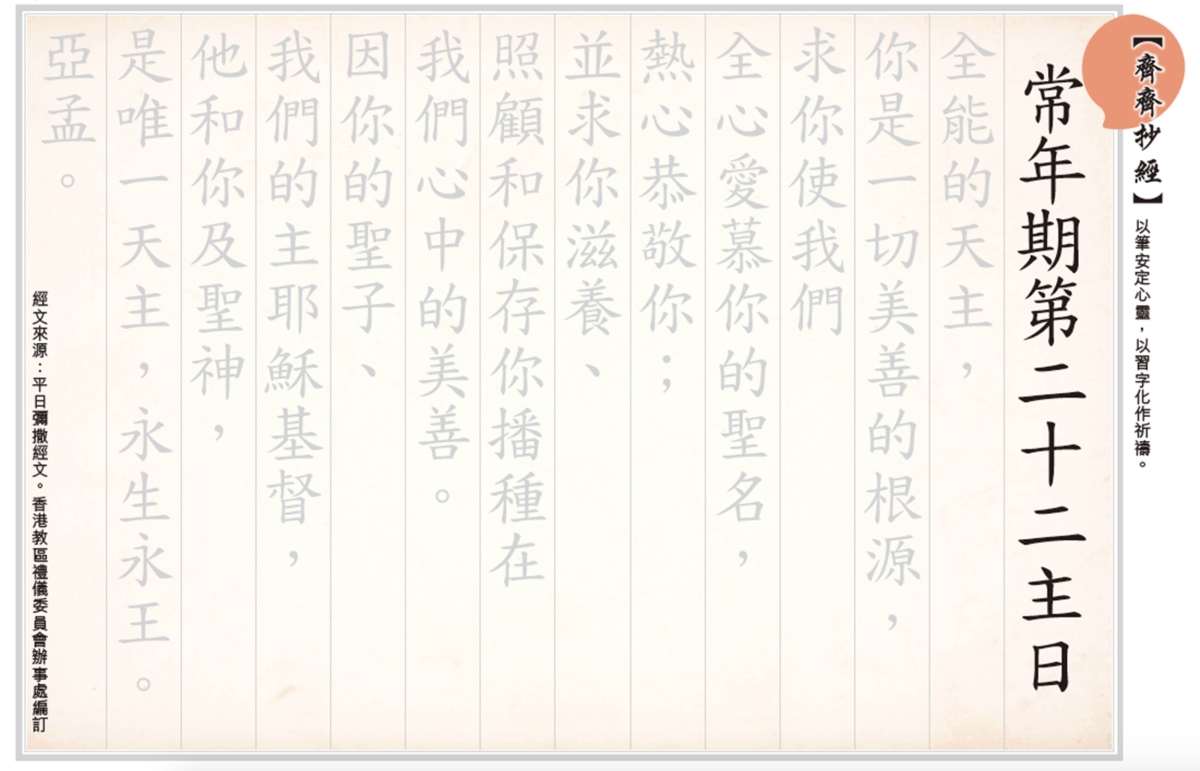 【齊齊抄經】
以筆安定心靈，以習字化作祈禱。
常年期第二十二主日
全能的天主，
你是一切美善的根源，
求你使我們
全心愛慕你的聖名，
熱心恭敬你；
並求你滋養、
照顧和保存你播種在
我們心中的美善。
因你的聖子、
我們的主耶穌基督，
他和你及聖神，
是唯一天主，永生永王。
亞孟。
經文來源：平日彌撒經文。香港教區禮儀委員會辦事處編訂